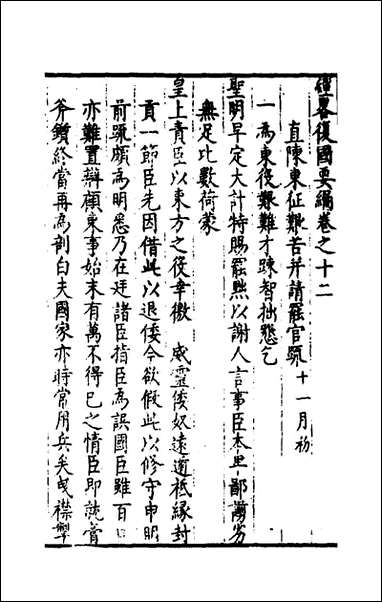 經畧復國要編卷之十二
直陳東征艱苦并請罷官疏 十一月初
一為東役艱難才踈智拙懇乞
聖明早定大計特賜罷黜以謝人言事臣本卑鄙謭劣
無足比數荷蒙
皇上責臣以東方之役幸徼 威靈倭奴遠遁祗緣封
貢一節臣先因借此以退倭今欲假此以修守申明
前疏頗為明悉乃在廷諸臣指臣為誤國臣雖百口
亦難置辯顧東事始末有萬不得已之情臣即就膏
斧鑕終當再為剖白夫國家亦時常用兵矣或襟掣